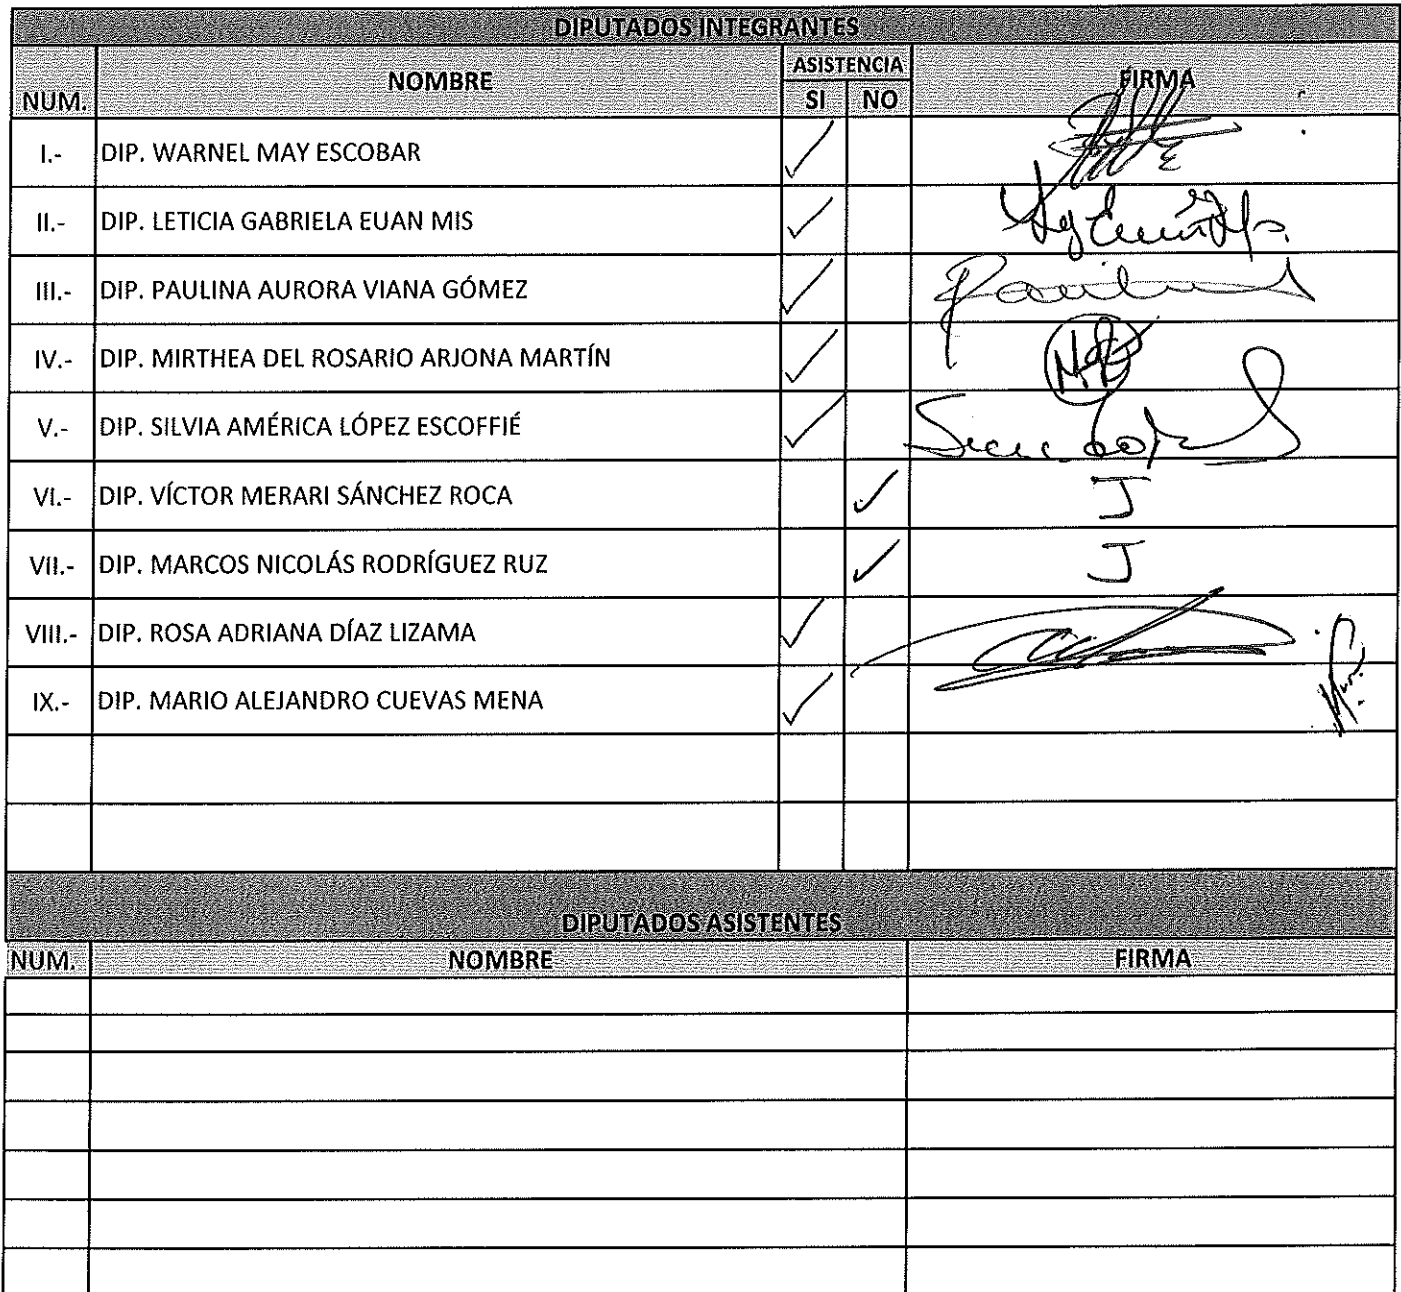 DIPUTADOS INTEGRANTES
NUM. NOMBRE ASISTENCIA FIRMA
SI NO
I.- DIP. WARNEL MAY ESCOBAR
II.- DIP. LETICIA GABRIELA EUAN MIS
III.- DIP. PAULINA AURORA VIANA GÓMEZ
IV.- DIP. MIRTHEA DEL ROSARIO ARJONA MARTÍN
V.- DIP. SILVIA AMÉRICA LÓPEZ ESCOFFIÉ
VI.- DIP. VÍCTOR MERARI SÁNCHEZ ROCA J
VII.- DIP. MARCOS NICOLÁS RODRÍGUEZ RUZ J
VIII.- DIP. ROSA ADRIANA DÍAZ LIZAMA
IX.- DIP. MARIO ALEJANDRO CUEVAS MENA
DIPUTADOS ASISTENTES
NUM. NOMBRE FIRMA